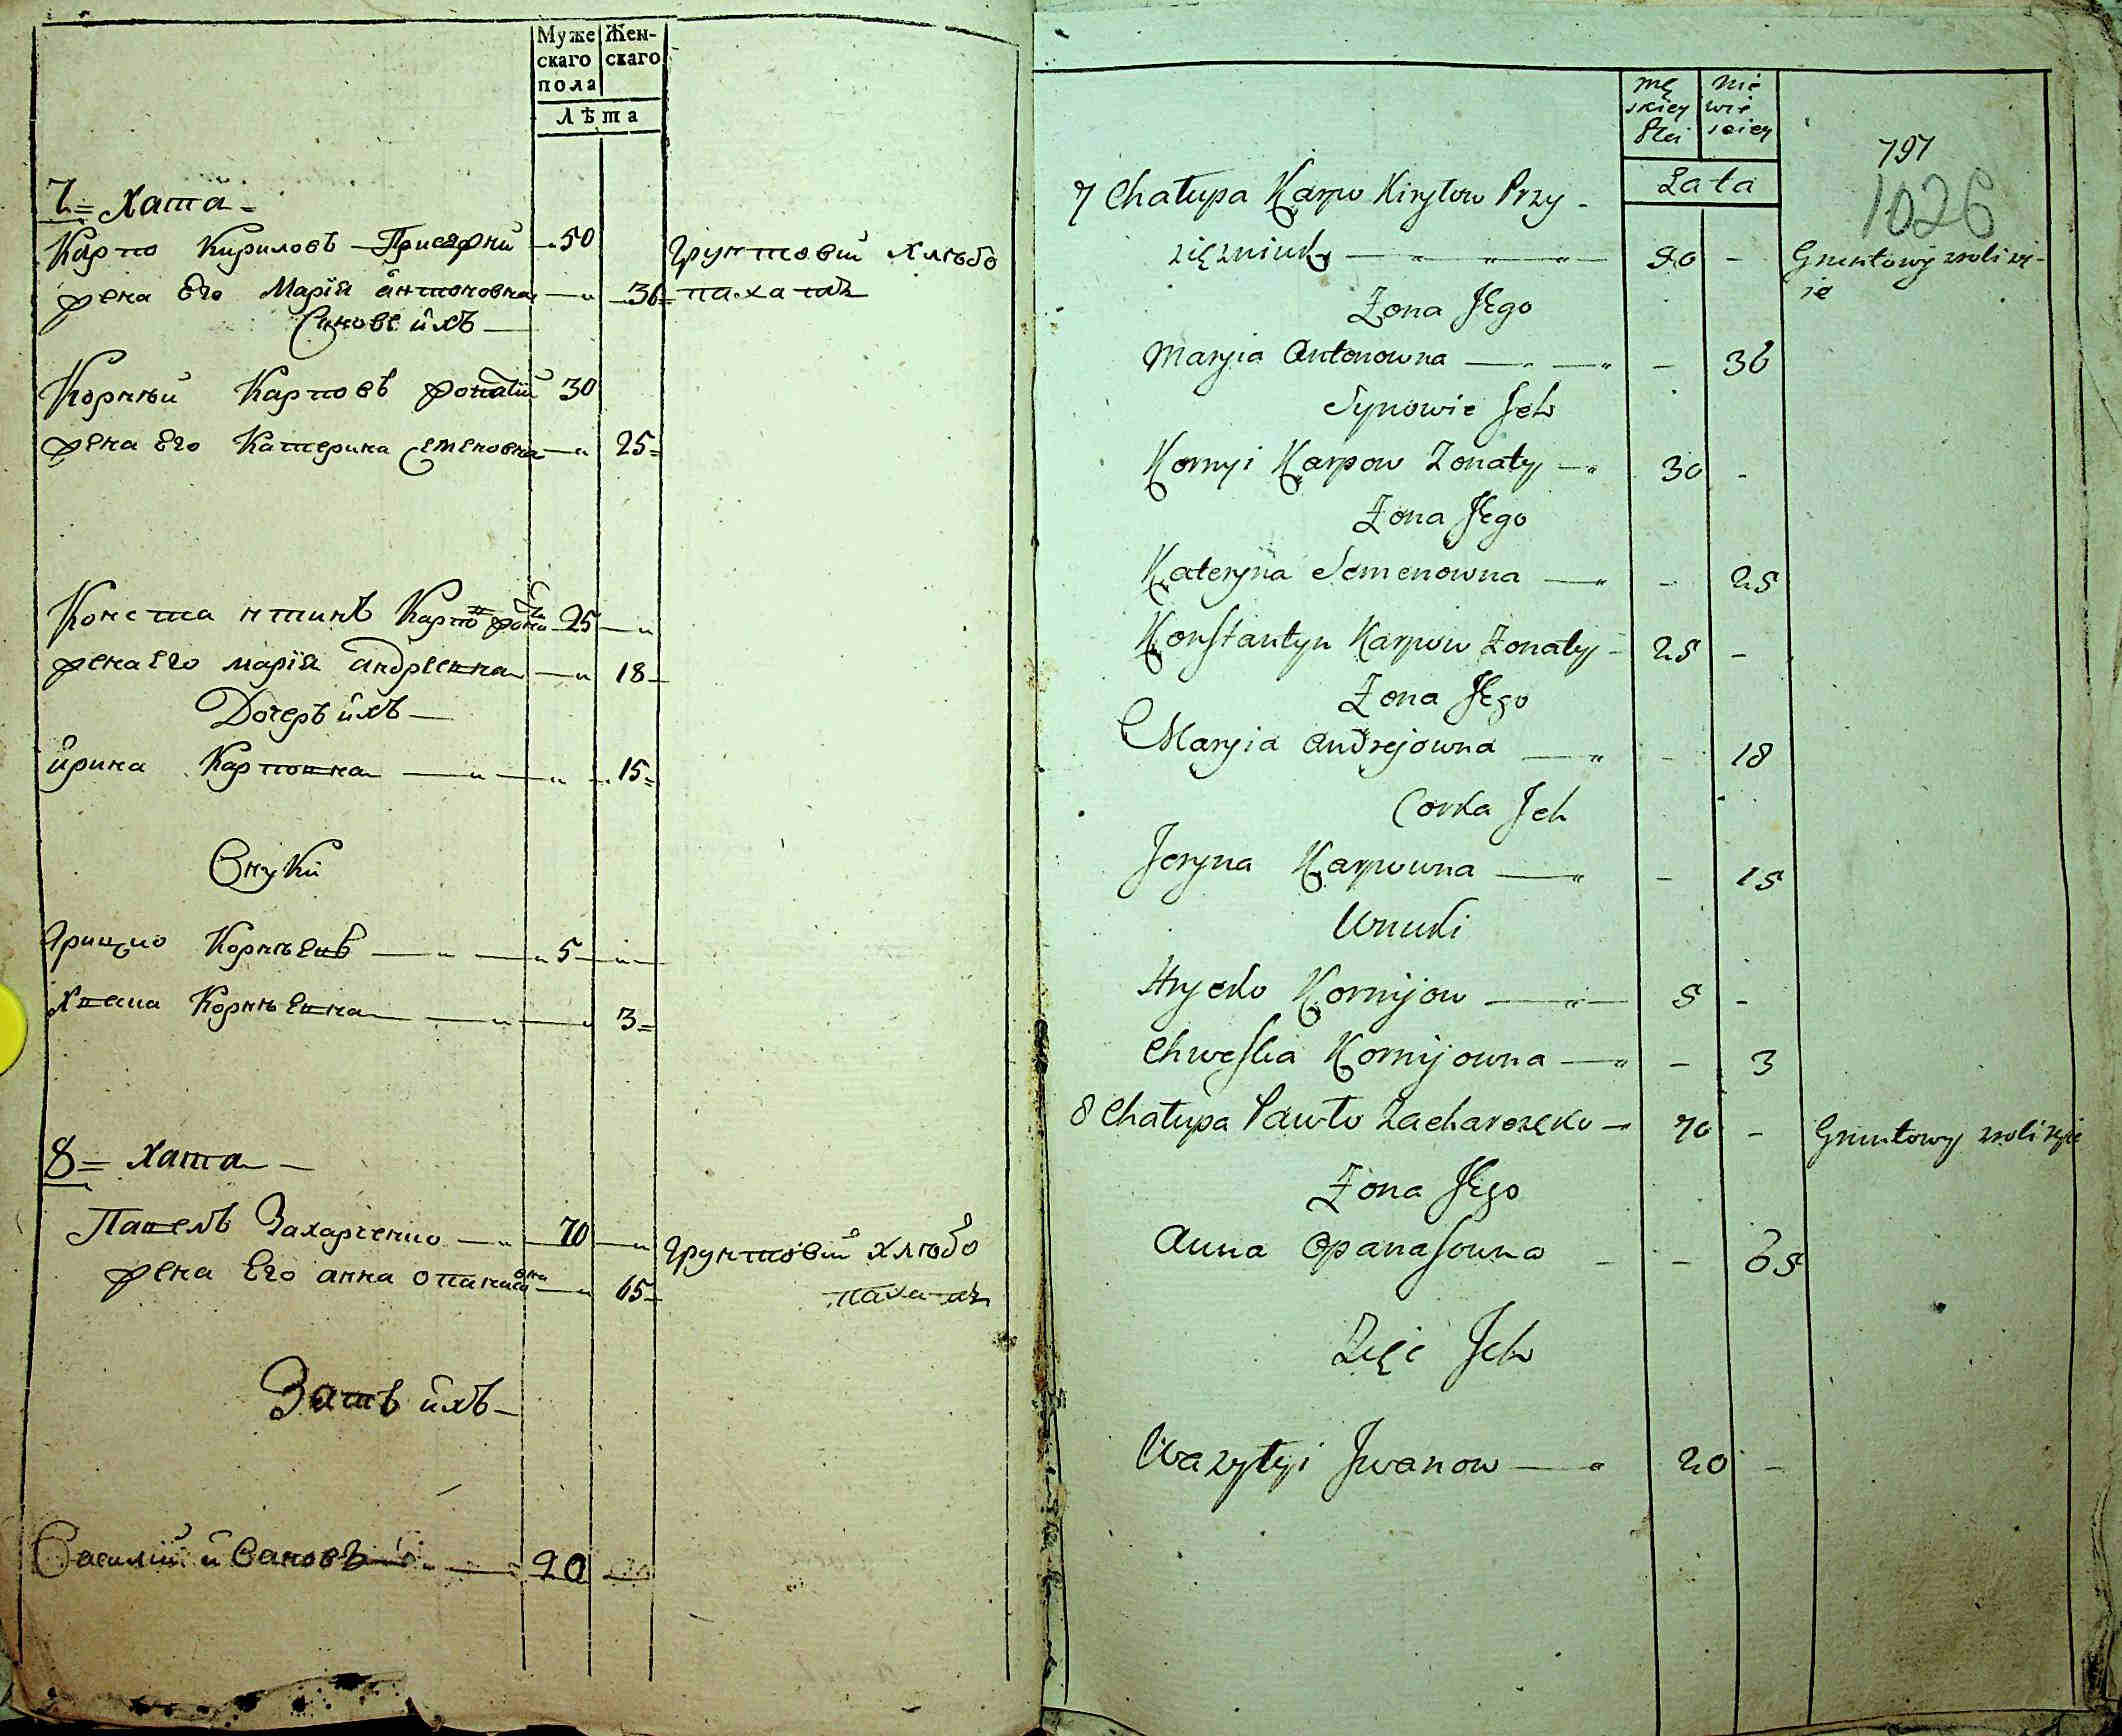 Муже
скаго
пола
Жен-
скаго
Лѣта
7 = Хата -
Карпо Кириловъ Присяжній 50
жена Его Марія антоновна 36
Синове ихъ
Корнѣй Карповъ жонатій 30
жена Его Катерина Семеновна 25
Константинъ Карпов жона 25
жена Его марія андреевна 18
Дочеръ ихъ
ирина Карповна 15
Внуки
Грицко Корнѣевъ 5
Хвеся Корнѣевна 3
8 = Хата -
Павелъ Захарченко 70
жена Его анна опанасовна 65
Зятъ ихъ
Василій ивановъ 20
Грунтовій хлѣбо
пахатъ
Грунтовій хлѣбо
пахатъ
mę
skiey
Płci
Nie
wie
sciey
Lata
797
1026
7 Chałupa Karpo Kiryłow Przy -
sięzniuk 50 - Gruntowy roli zy-
ie
Zona Jego
Maryia Antonowna - 36
Synowie Jch
Kornyi Karpow Zonaty 30 -
Zona Jego
Kateryna Semenowna - 25
Konstantyn Karpow Zonaty 25 -
Zona Jego
Maryia Andrejowna - 18
Corka Jch
Jeryna Karpowna - 15
Wnuki
Hrycko Kornijow 5 -
Chwesia Kornijowna - 3
8 Chałupa Pawło Zacharczęko 70 - Gruntowy roli zyie
Zona Jego
Anna Opanasowna - 65
Zięć Jch
Wazyłyi Jwanow 20 -